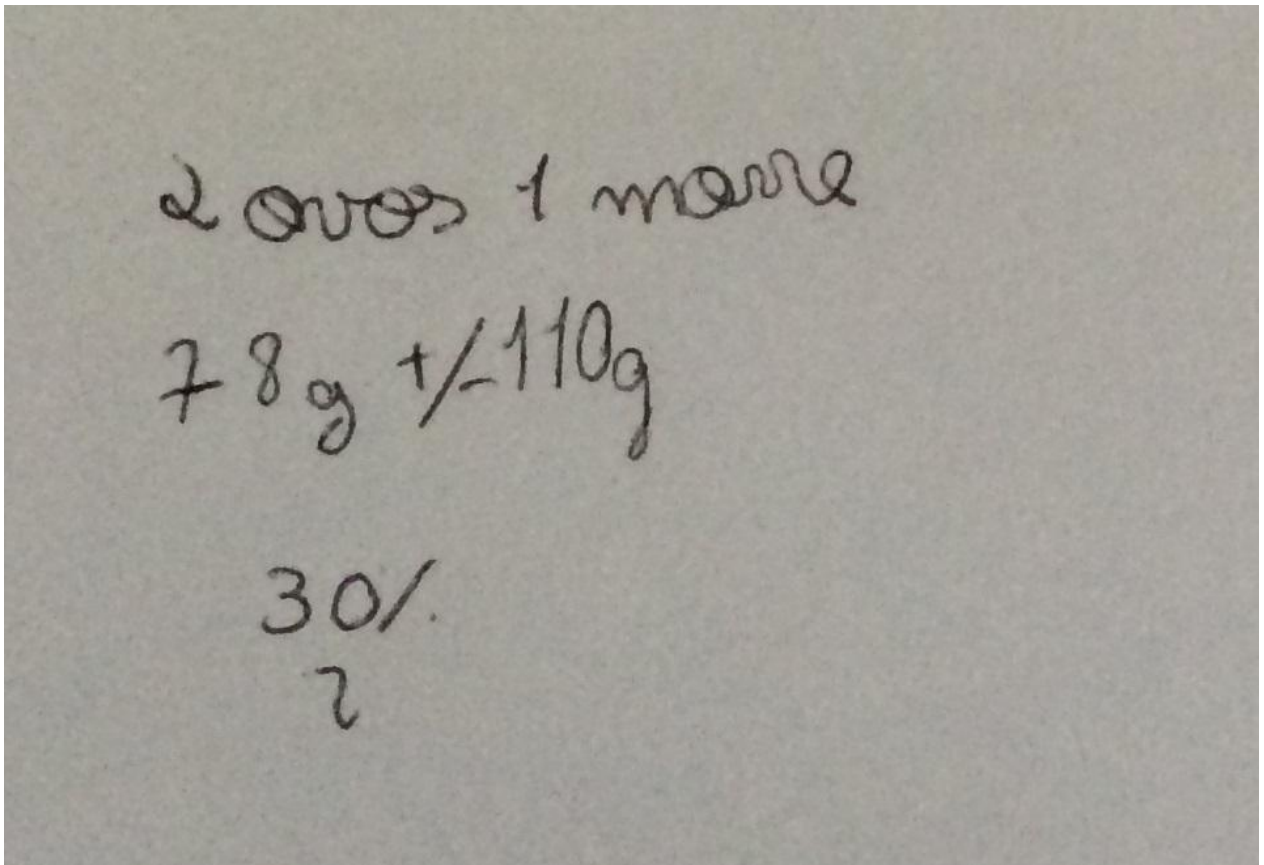 2 ovos 1 massa
78g +/-110g
30%
?